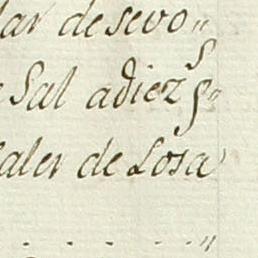 lar de sevo "
e Sal adiez
aler de Losa
. . . . . "